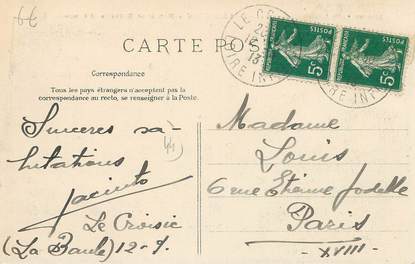 6€
CARTE POS
Correspondance
Tous les pays étrangers n'acceptent pas la
correspondance au recto, se renseigner à la Poste.
LE CR
RE INF
POSTES
5c
POSTES
5c
RE INF
44
Sinceres sa-
lutations
Jacinto
Le Croisic
(La Baule) 12-7.
Madame
Louis
6 rue Etienne Jodelle
Paris
XVIII